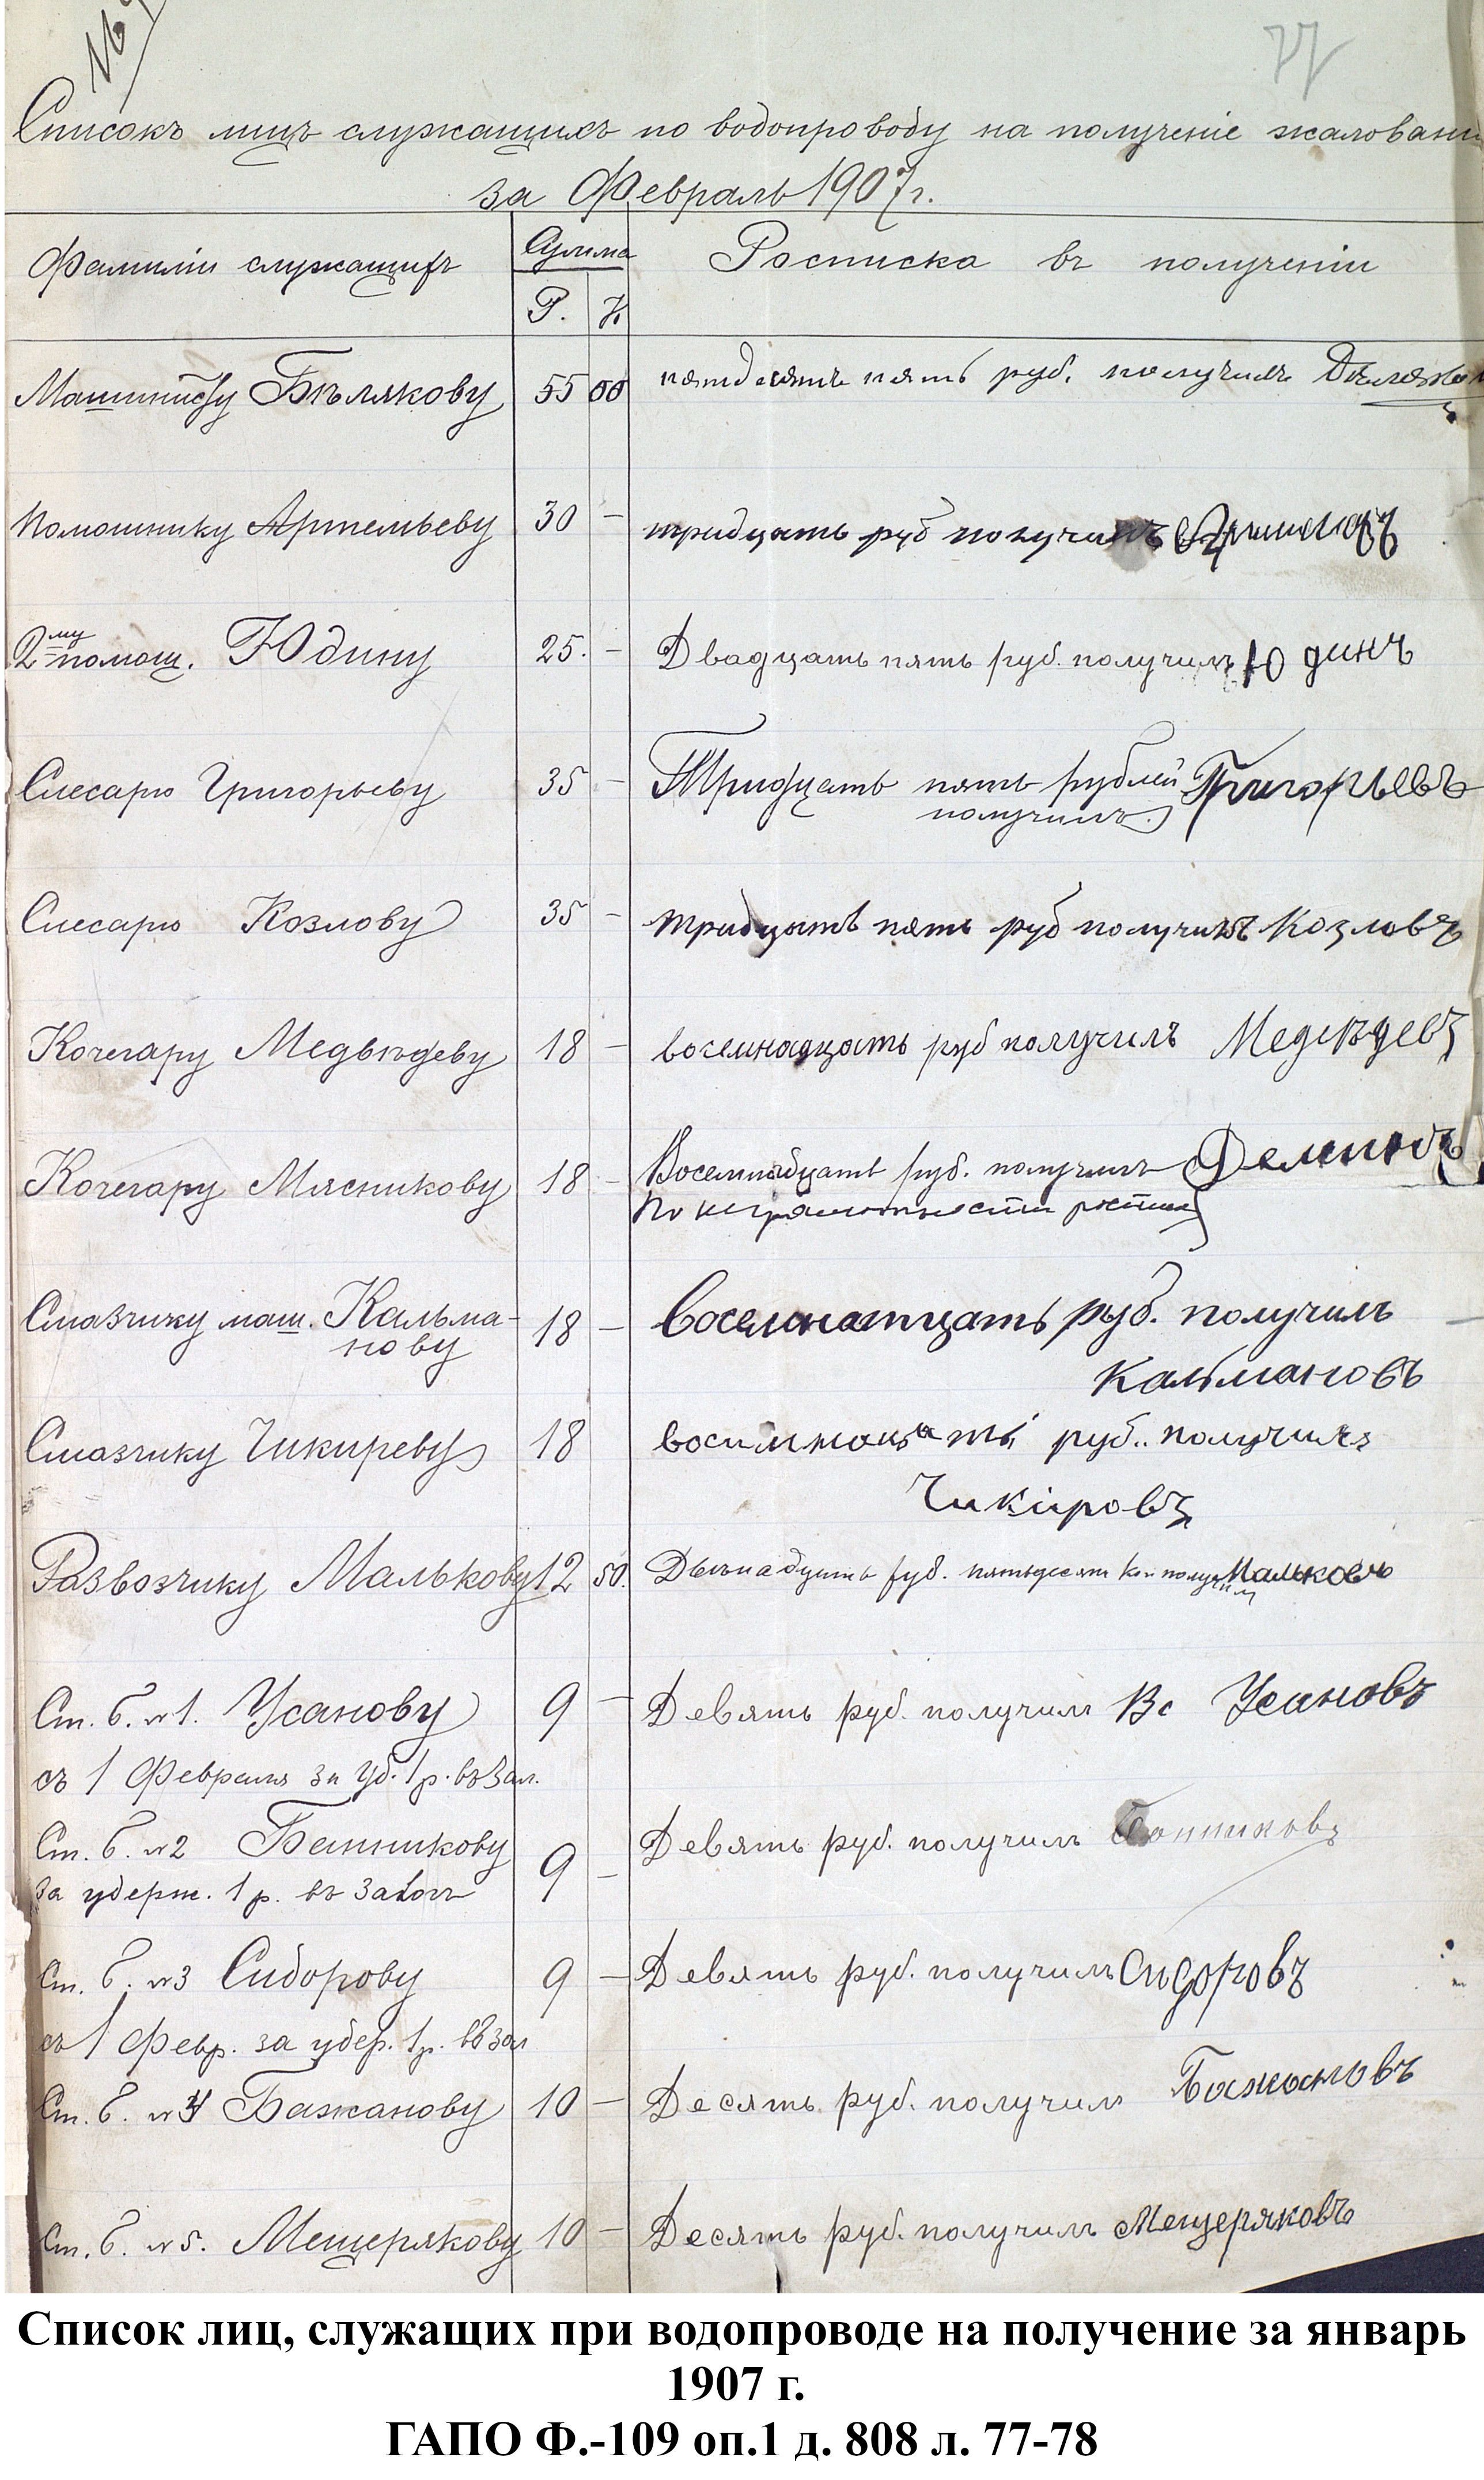 77
Списокъ лицъ служащихъ по водопроводу на полученіе жаловані
за Февраль 1907 г.
Фамиліи служащихъ
Сумма
Росписка въ полученіи
Р. К
Машинисту Бѣлякову 55 00 пятдесятъ пять руб. получилъ Бѣляковъ
Помошнику Артемьеву 30 - тридцать руб получилъ
2му помощ. Юдину 25. - Двадцать пять руб. получилъ Юдинъ
Слесарю Григорьеву 35 - Тридцать пять рублей Григорьевъ
получилъ
Слесарю Козлову 35 - тридцать пять руб получилъ Козловъ
Кочегару Медвѣдеву 18 - восемнадцать руб получилъ Медвѣдевъ
Кочегару Мясникову 18 - Восемнадцать руб. получилъ Деминъ
По неграмотности
Смазчику маш. Кальма-
нову 18 - восемнатцать руб. получилъ
Кальмановъ
Смазчику Чикиреву 18 восимнацать руб.. получилъ
Чикіровъ
Развозчику Малькову 12 50. Двенадцать руб. пятьдесят коп получил Мальковъ
Ст. б. №1. Усанову 9 - Девять руб. получилъ Вс Усановъ
съ 1 Февраля за уд. 1 р. въ зал.
Ст. б. №2 Банникову 9 - Девять руб. получилъ Банниковъ
за удерж. 1 р. въ залогъ
Ст. б. №3 Сидорову 9 - Девять руб. получилъ Сидоровъ
съ 1 февр. за удер. 1 р. въ зал
Ст. б. №4 Бажанову 10 - Десять руб. получилъ Бажановъ
Ст. б. №5. Мещерякову 10 - Десять руб. получилъ Мещеряковъ
Список лиц, служащих при водопроводе на получение за январь
1907 г.
ГАПО Ф.-109 оп.1 д. 808 л. 77-78